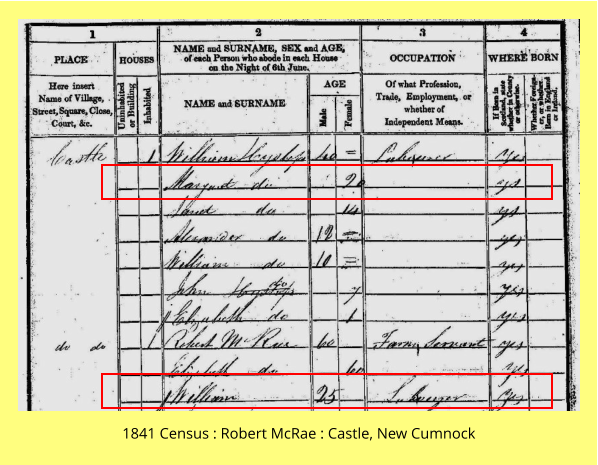 1 2 3 4
PLACE HOUSES NAME and SURNAME, SEX and AGE, OCCUPATION WHERE BORN
of each Person who abode in each House
on the Night of 6th June.
Here insert
Name of Village,
Street, Square, Close,
Court, &c.
Uninhabited
or Building
Inhabited
NAME and SURNAME
AGE
Male
Female
Of what Profession,
Trade, Employment, or
whether of
Independent Means.
If Born in
Scotland, state
whether in County
or otherwise.
Whether Foreigner,
or whether
Born in England
or Ireland.
Castle 1 William Hyslop 40 Labourer yes
Margret do 20 yes
Janet do 14 yes
Alexander do 12 yes
William do 10 yes
John Hyslop do 7 yes
Elizabeth do 1 yes
do do 1 Robert McRae 60 Farm Servant yes
Elizabeth do 60 yes
William 25 Labourer yes
1841 Census : Robert McRae : Castle, New Cumnock